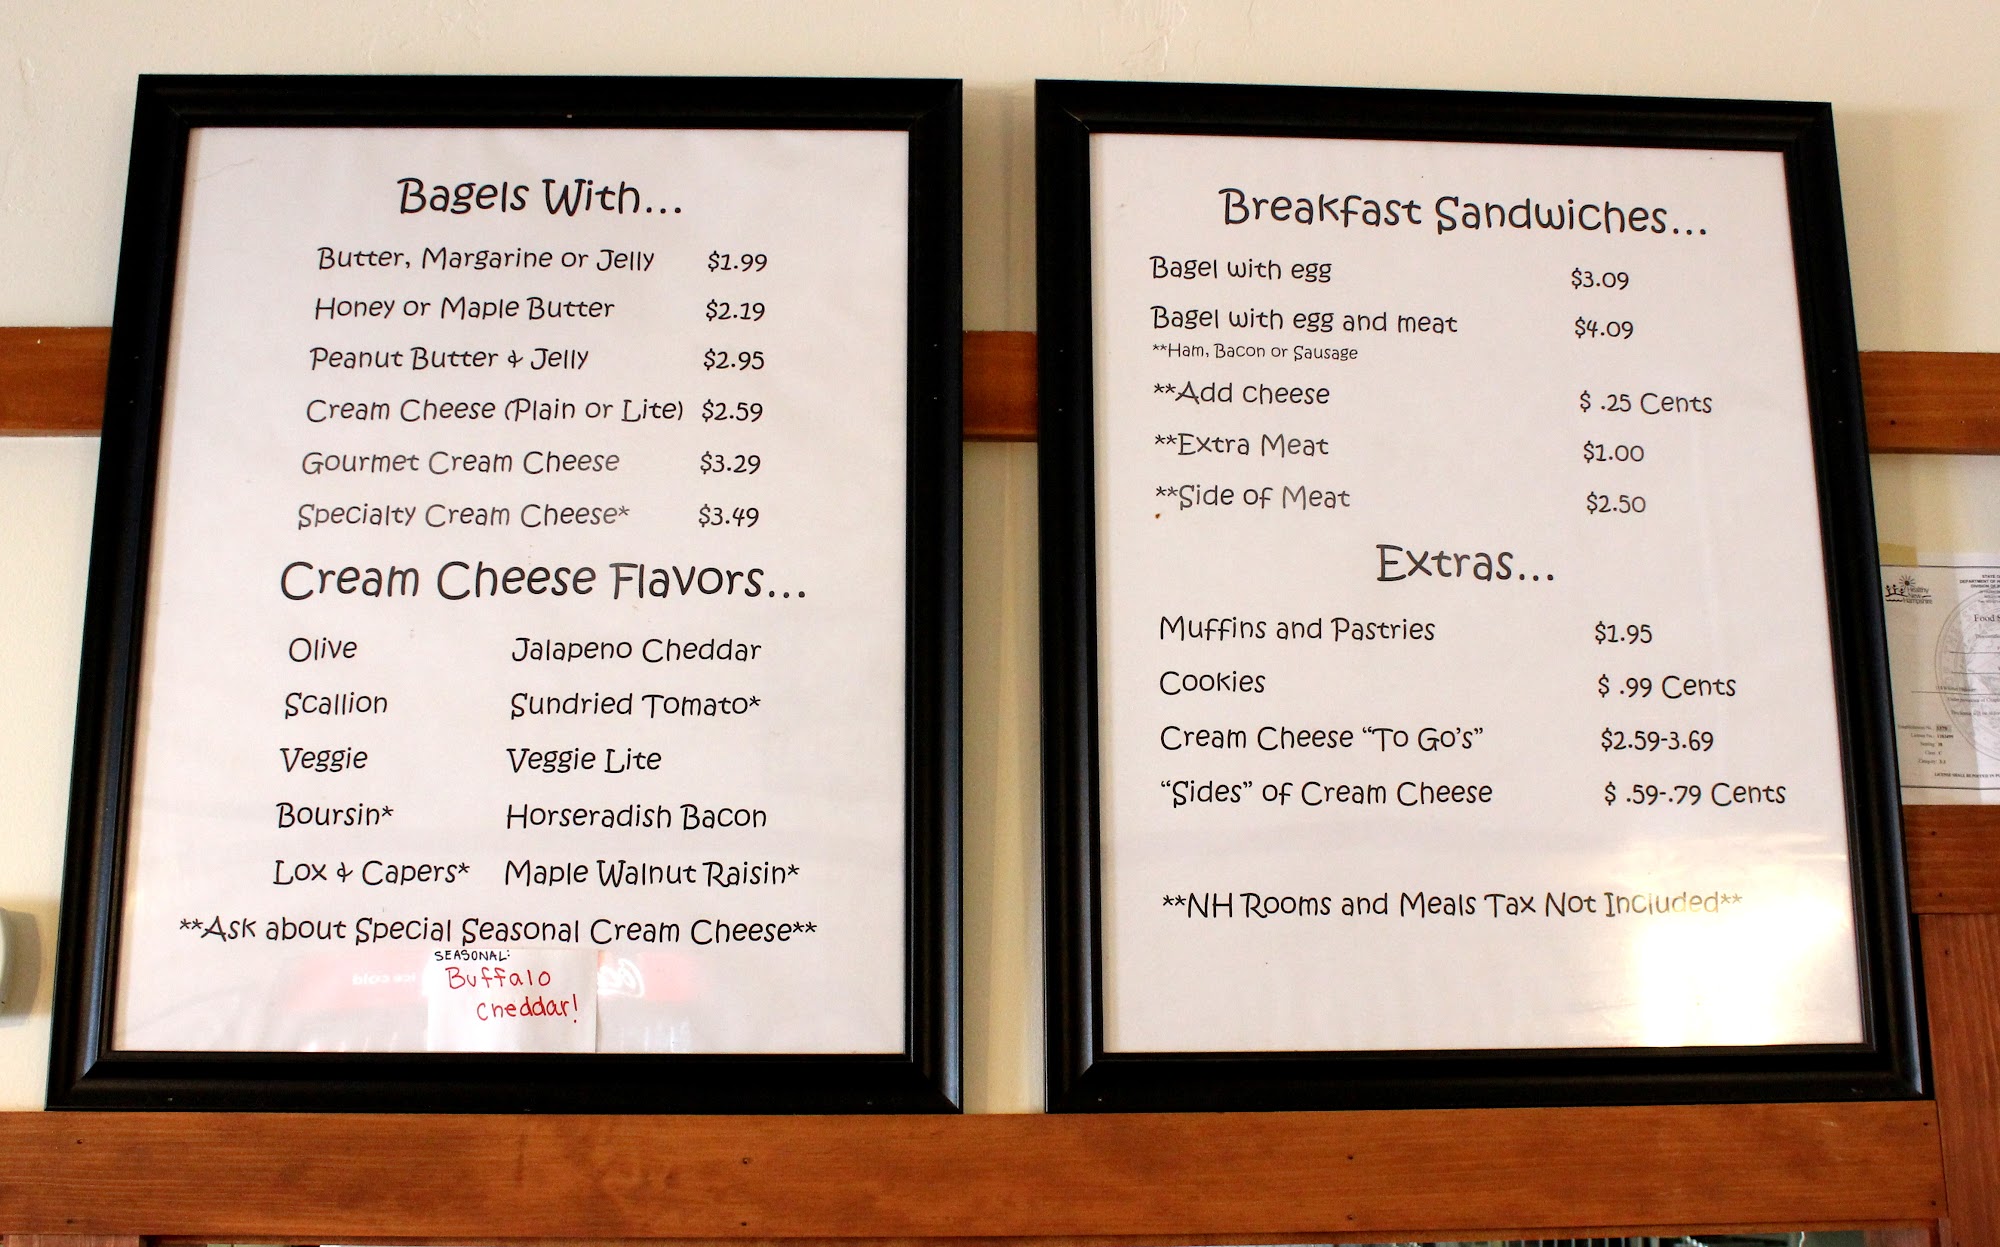 Bagels With...
Butter, Margarine or Jelly $1.99
Honey or Maple Butter $2.19
Peanut Butter & Jelly $2.95
Cream Cheese (Plain or Lite) $2.59
Gourmet Cream Cheese $3.29
Specialty Cream Cheese* $3.49
Cream Cheese Flavors...
Olive Jalapeno Cheddar
Scallion Sundried Tomato*
Veggie Veggie Lite
Boursin* Horseradish Bacon
Lox & Capers* Maple Walnut Raisin*
**Ask about Special Seasonal Cream Cheese**
SEASONAL:
Buffalo
cheddar!
Breakfast Sandwiches...
Bagel with egg $3.09
Bagel with egg and meat $4.09
**Ham, Bacon or Sausage
**Add cheese $ .25 Cents
**Extra Meat $1.00
**Side of Meat $2.50
Extras...
Muffins and Pastries $1.95
Cookies $ .99 Cents
Cream Cheese “To Go's” $2.59-3.69
“Sides” of Cream Cheese $ .59-.79 Cents
**NH Rooms and Meals Tax Not Included**
Healthy
New
Hampshire
STATE
Food